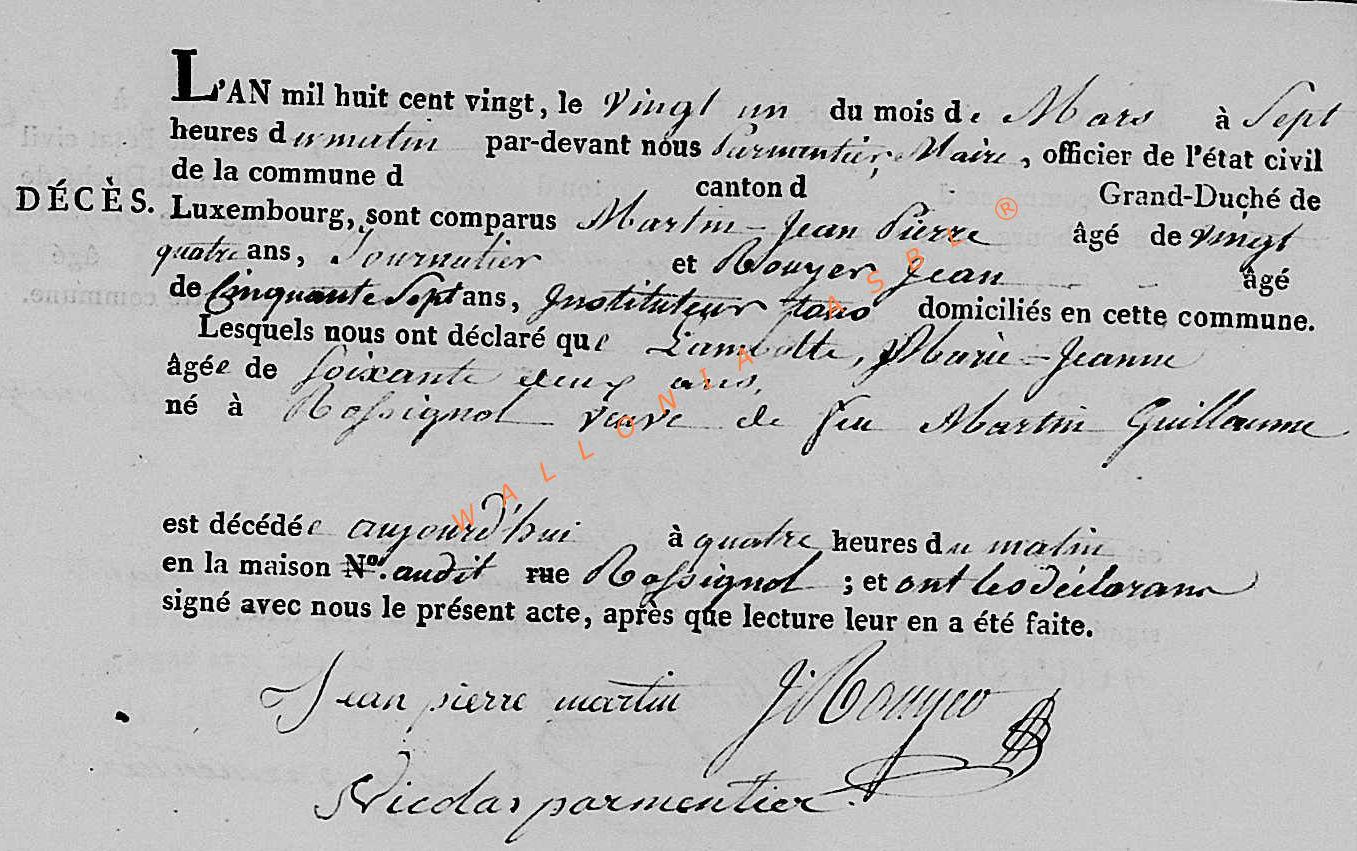 L'AN mil huit cent vingt, le vingt un du mois de Mars à Sept
heures du matin par-devant nous Parmentier, Maire, officier de l'état civil
de la commune d canton d Grand-Duché de
DÉCÈS.
Luxembourg, sont comparus Martin Jean Pierre âgé de vingt
quatre ans, Journalier et Rouyer Jean âgé
de Cinquante Sept ans, Instituteur tous domiciliés en cette commune.
Lesquels nous ont déclaré que Lambotte, Marie-Jeanne
âgée de soixante deux ans,
né à Rossignol veuve de feu Martin Guillaume
est décédée aujourd'hui à quatre heures du matin
en la maison No. audit rue Rossignol ; et ont les déclarans
signé avec nous le présent acte, après que lecture leur en a été faite.
Jean pierre martin J Rouyer
Nicolas parmentier.
WALLONIA ASBL ®